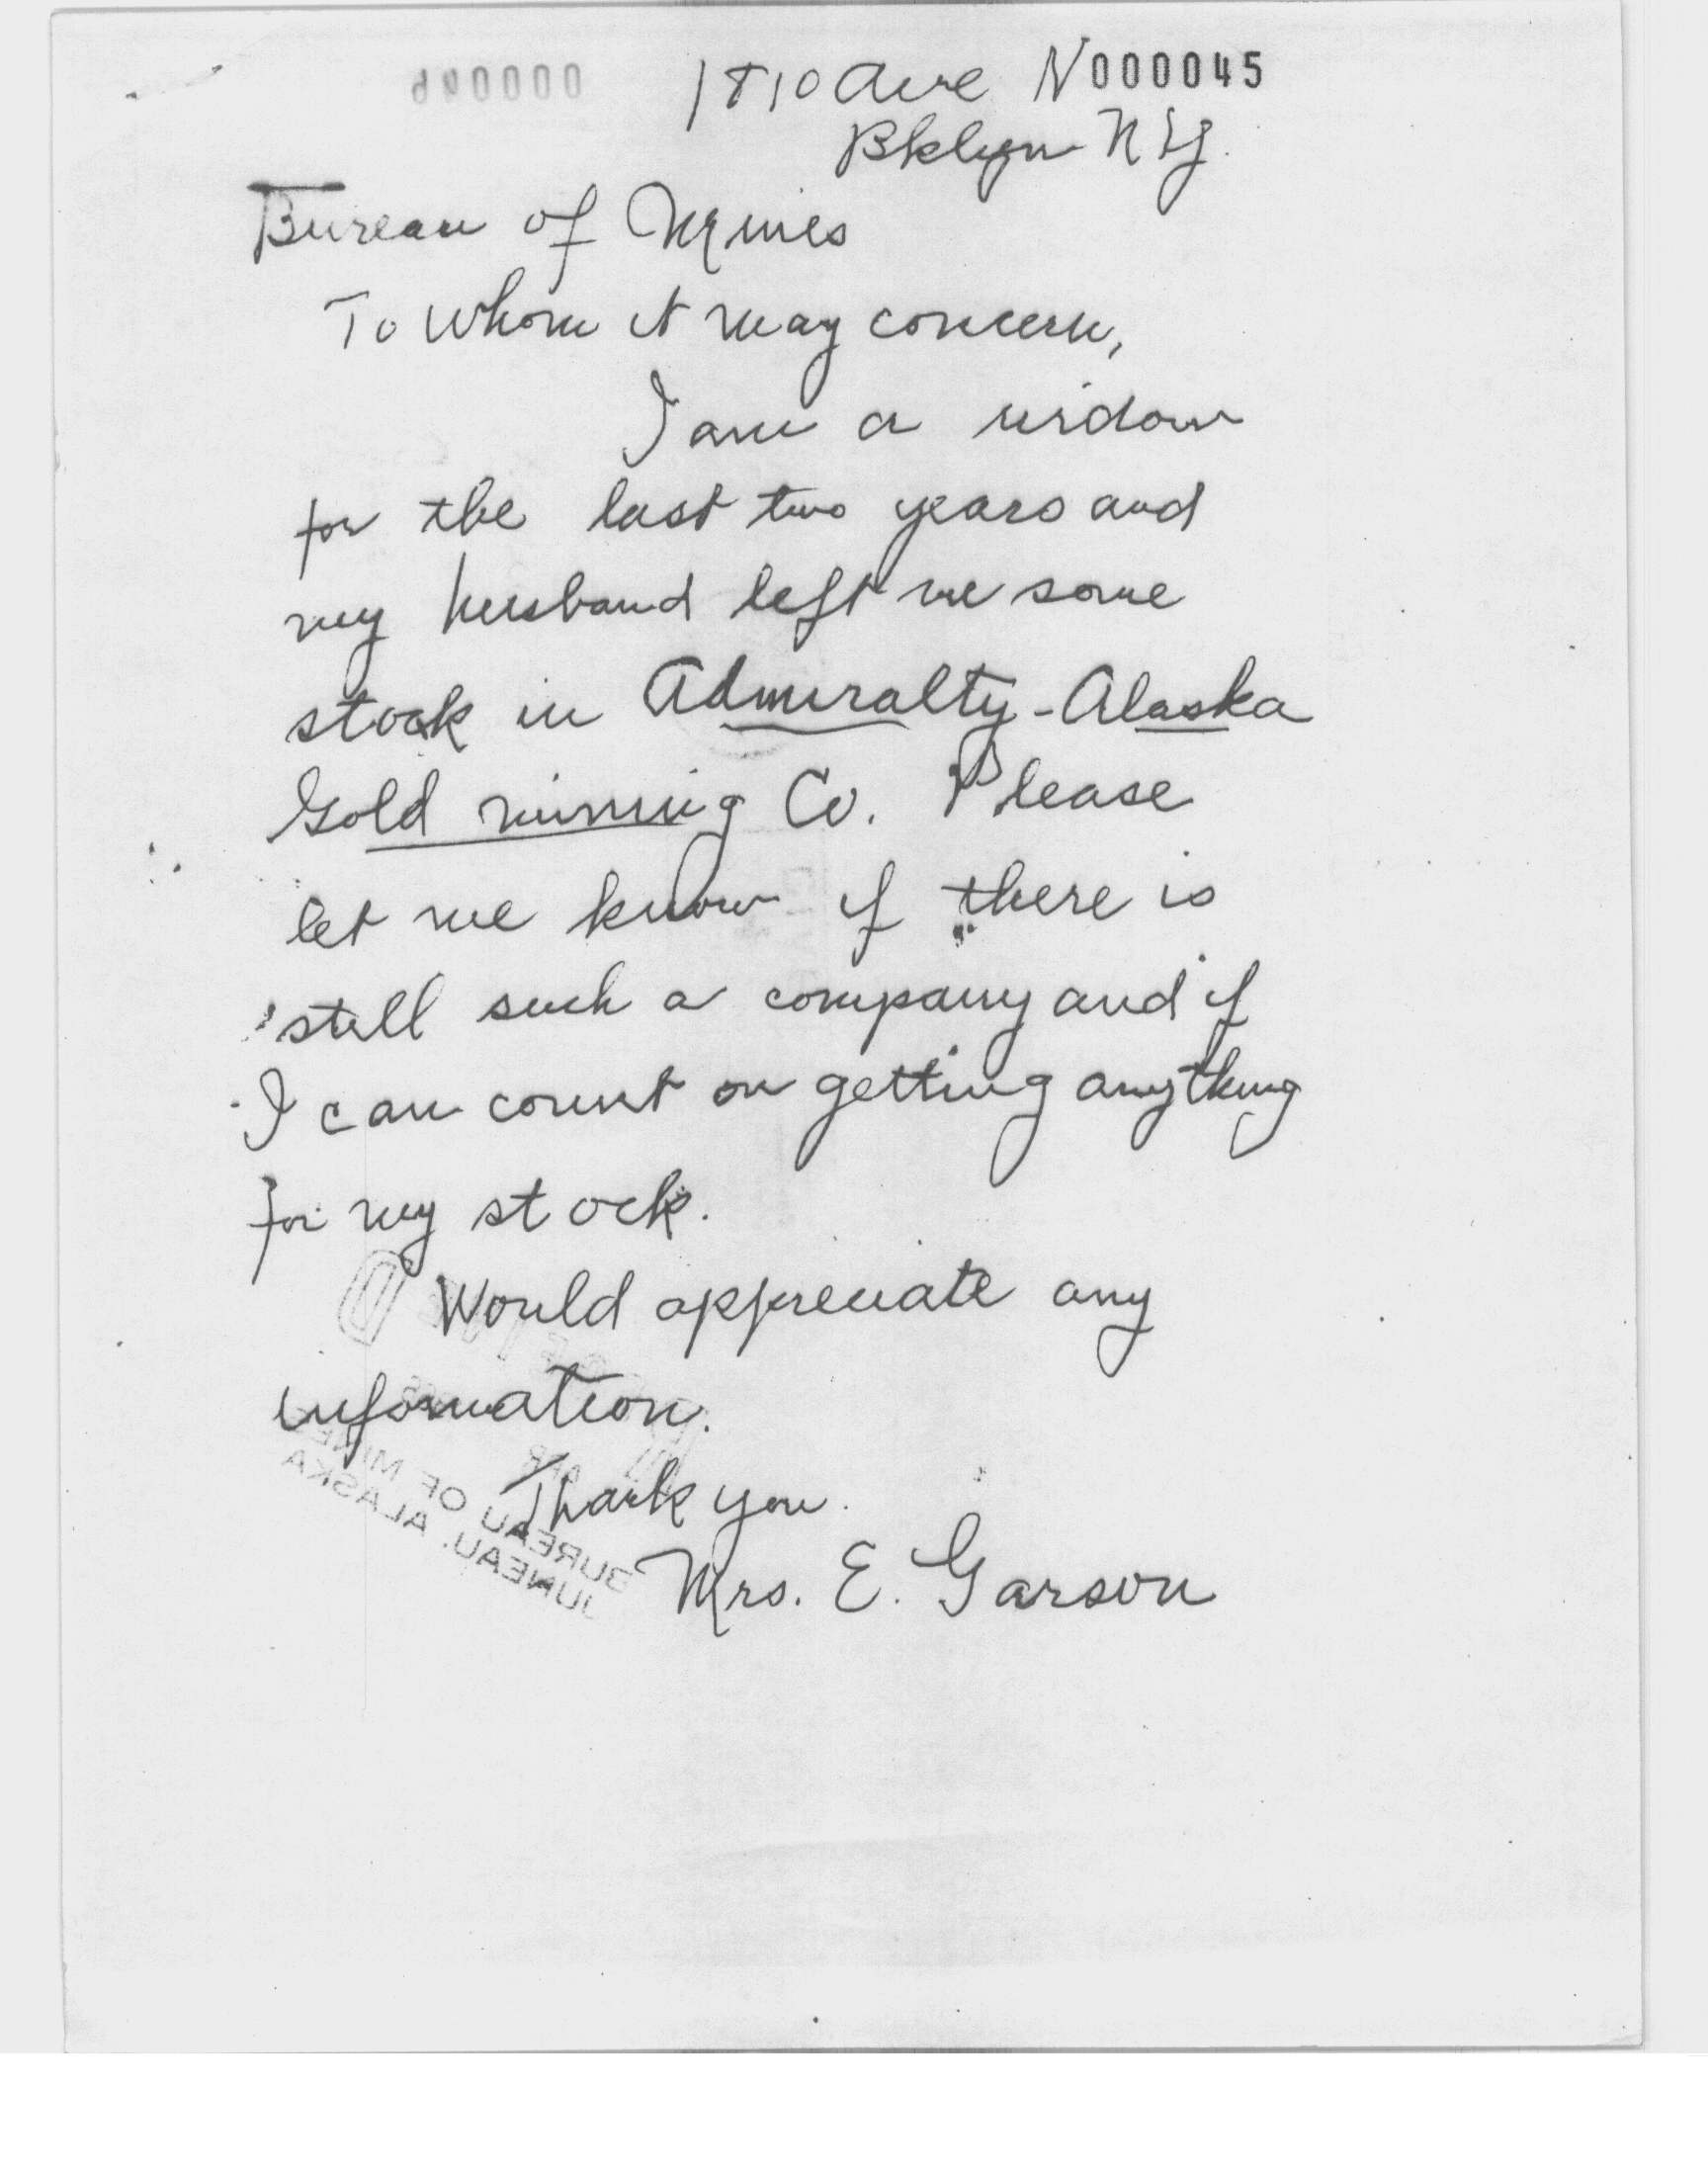 1810 Ave N 000045
Bklyn N Y.
Bureau of Mines
To Whom it may concern,
I am a widow
for the last two years and
my husband left me some
stock in Admiralty-Alaska
Gold mining Co. Please
let me know if there is
still such a company and if
I can count on getting anything
for my stock.
Would appreciate any
information.
Thank you.
Mrs. E. Garson
BUREAU OF MINES
JUNEAU, ALASKA